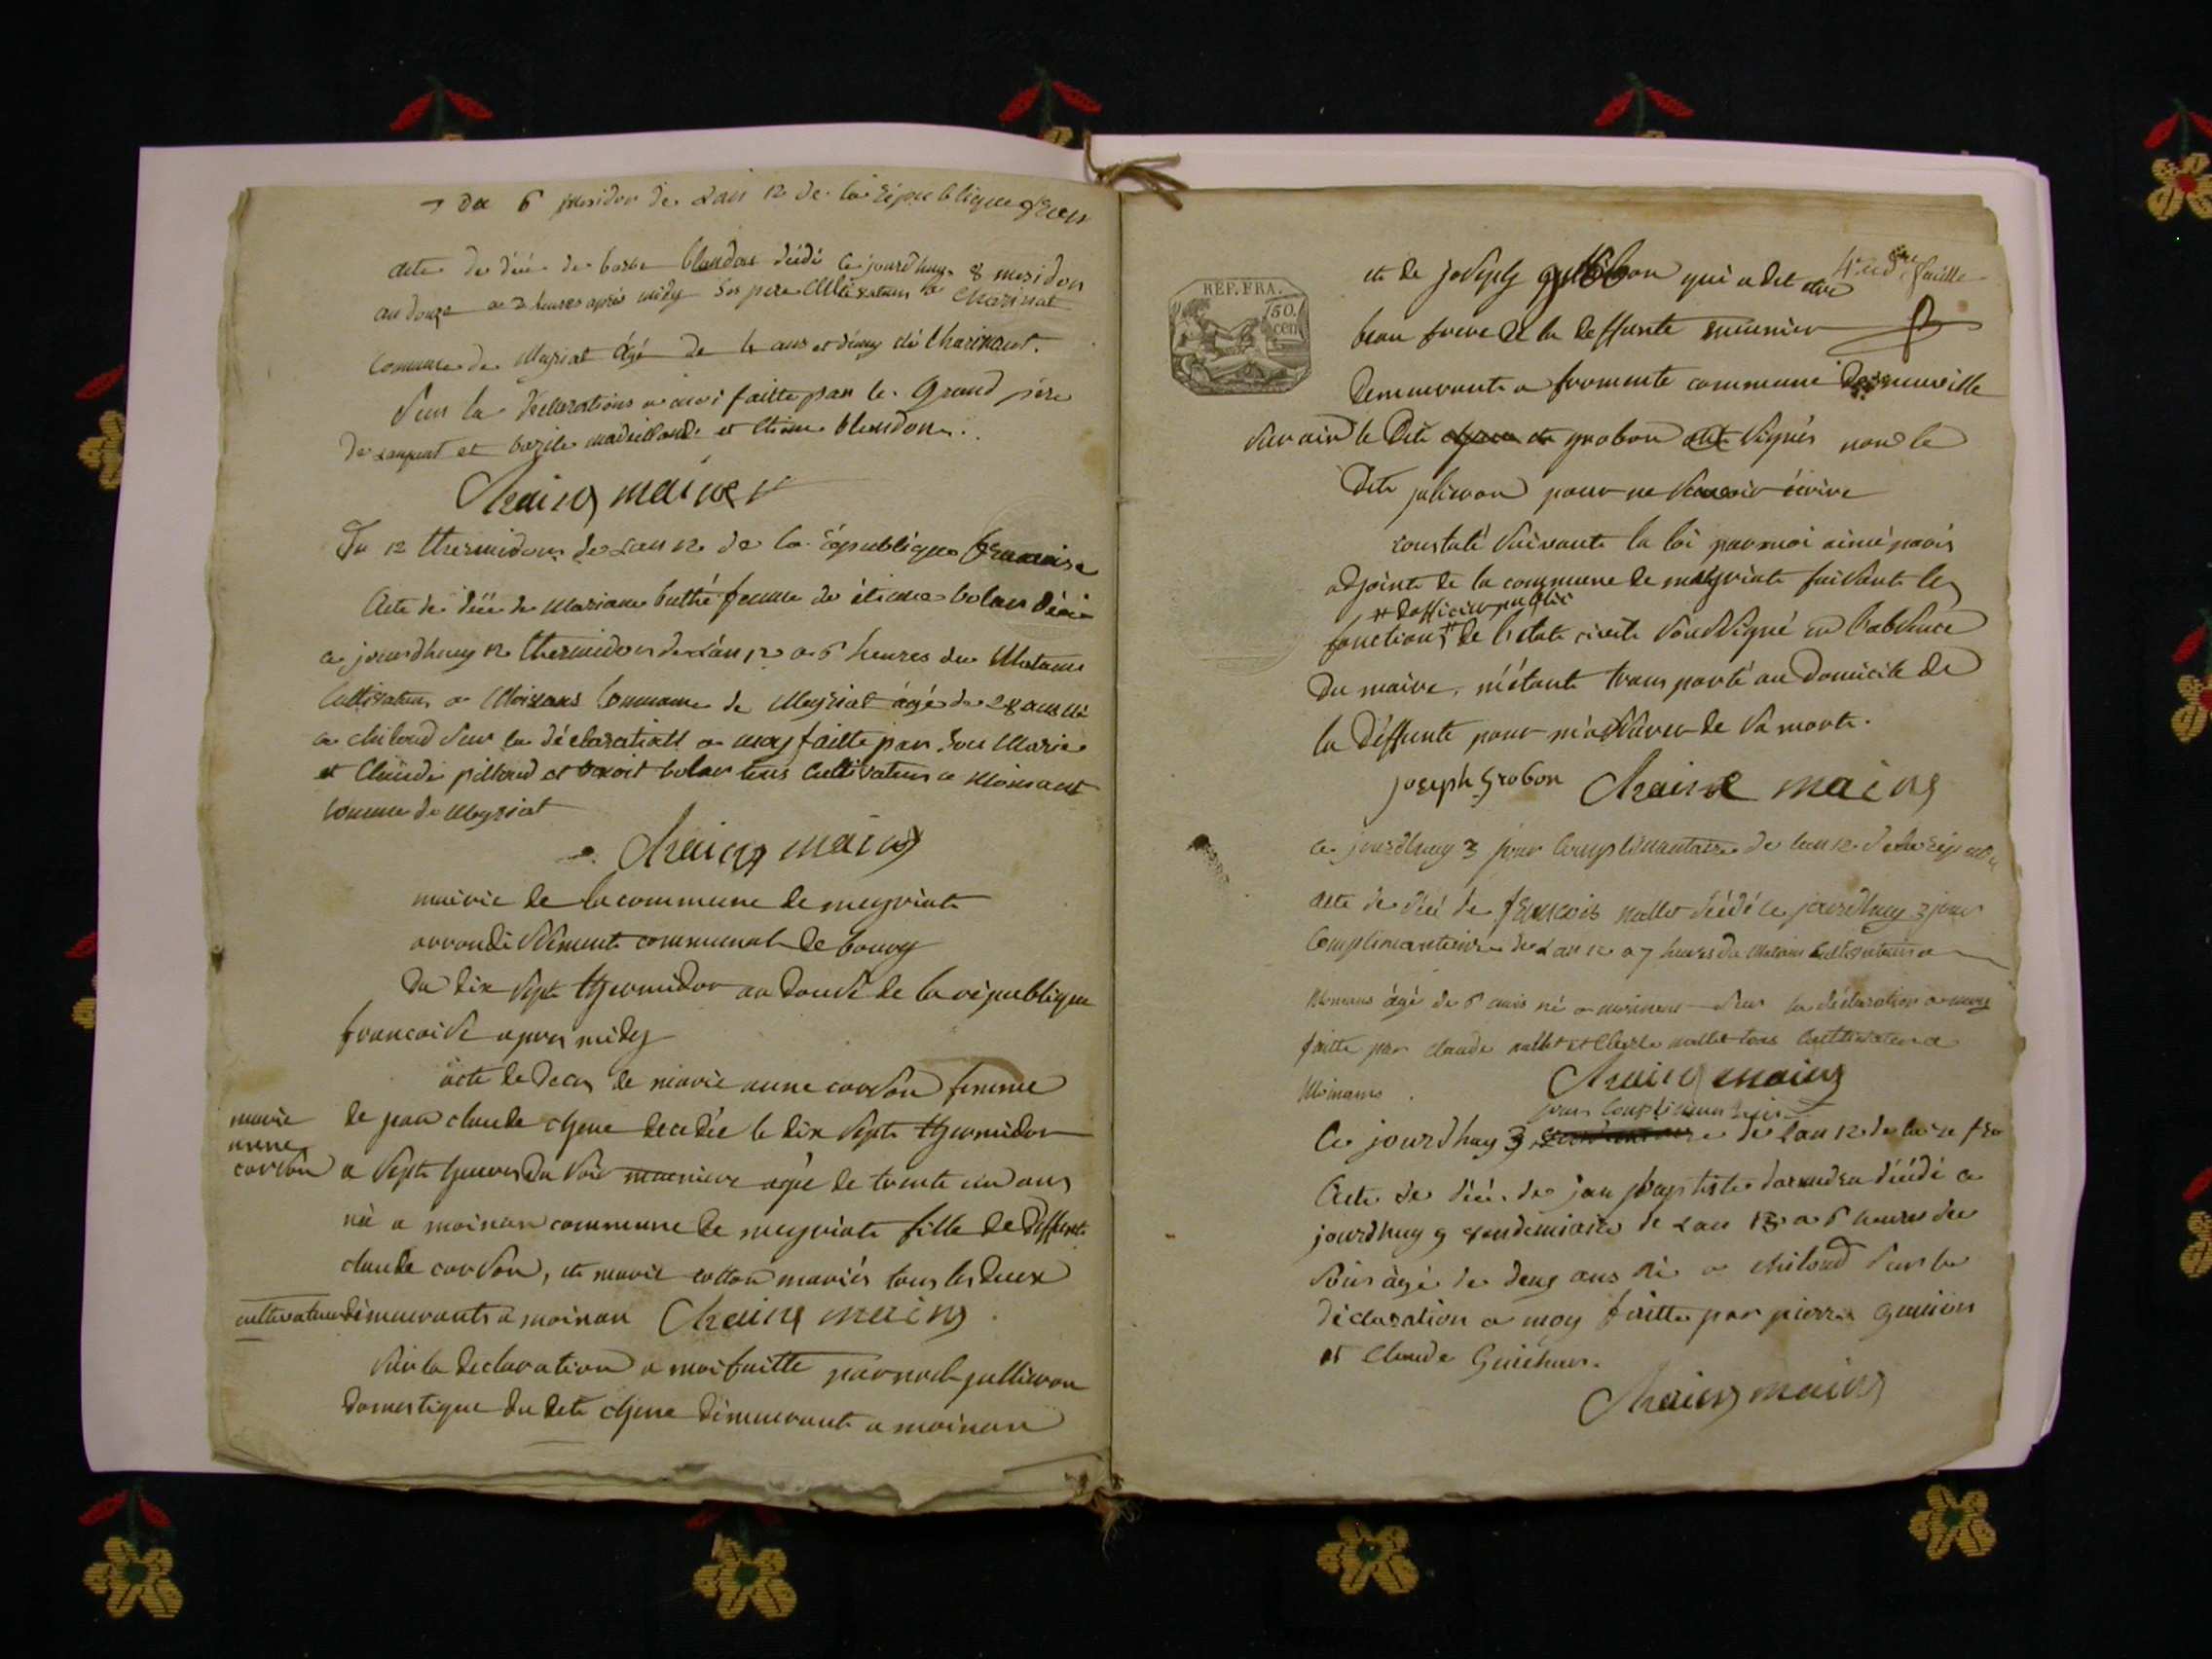 Du 6 mesidor de Lan 12 de la republique fran
acte de décé de barbe blondon décédé ce jourdhuy 8 mesidor
an douze a 3 heures après midy Son pere Cultivateur a Charinat
Commune de Meyriat Agé de 4 ans et demy né Charinaut.
Sur la declarations a moi faitte par le Grand pere
De et bazile et Etienne blondon.
Chaing maire
Du 12 thermidor de Lan 12 de la république francaise
Acte de décé de Mariane buthé femme de étienne bolar décé
ce jourdhuy 12 thermidor de Lan 12 a 6 heures du Matain
Cultivateur a Moizans Commune de Meyriat agé de 28 ans né
a chiloud Sur la déclaration a moy faitte par Son Marie
et Claude pilloud et benoit bolar tous Cultivateur a Moinant
Commune de Meyriat
Chaing maire
mairie de la commune de meyriat
arrondissement communal de bourg
Du dix Sept thermidor an douse de la république
francoise apres midy
acte de deces de marie anne cordon femme
marie
anne
cordon
de jean claude chene decedée le dix Sept thermidor
a Sept heures du Soir meuniere agée de trente un ans
née a moinan commune de meyriat fille de deffunt
claude cordon, et marie cotton mariés tous les deux
cultivateur demeurants a moinan Chaing maire
Sur la declaration a moi faitte par noel jullieron
domestique du dit chene demeurant a moinan
REP. FRA.
50 cen
4e et dre feuille
et de joseph grobon qui a dit etre
beau frere de la deffunte meunier
Demeurant a fromente commune de neuville
Sur ain le Dit grobon Signés non le
Dit julieron pour ne Savoir écrire
constaté Suivant la loi par moi aimé
adjoint de la commune de meyriat faisant les
# d'officier public
fonctions # de l'etat civil Soussigné en l'absence
du maire, m'étant transporté au Domicile de
la Déffunte pour m'assurer de Sa mort.
joseph Grobon Chaine maing
ce jourdhuy 3 jour Complimantaire de lan 12 de la repub
acte de décé de françois nallet décédé ce jourdhuy 3 jour
Complimantaire de Lan 12 a 7 heures du Matain Cultivateur a
Moinans agé de 6 mois né a moinant Sur la déclaration a moy
faitte par claude nallet et nallet tous Cultivateur a
Moinans.
Chaing maing
jour Complimentaire
Ce jourdhuy 3 de Lan 12 de la re fra
Acte de décé de jan baptiste darandon décédé ce
jourdhuy 9 vendemiaire de Lan 13 a 6 heures du
Soir agé de deux ans né a chiloud Sur la
déclaration a moy faitte par pierre
et Claude Guichon.
Chaing maing